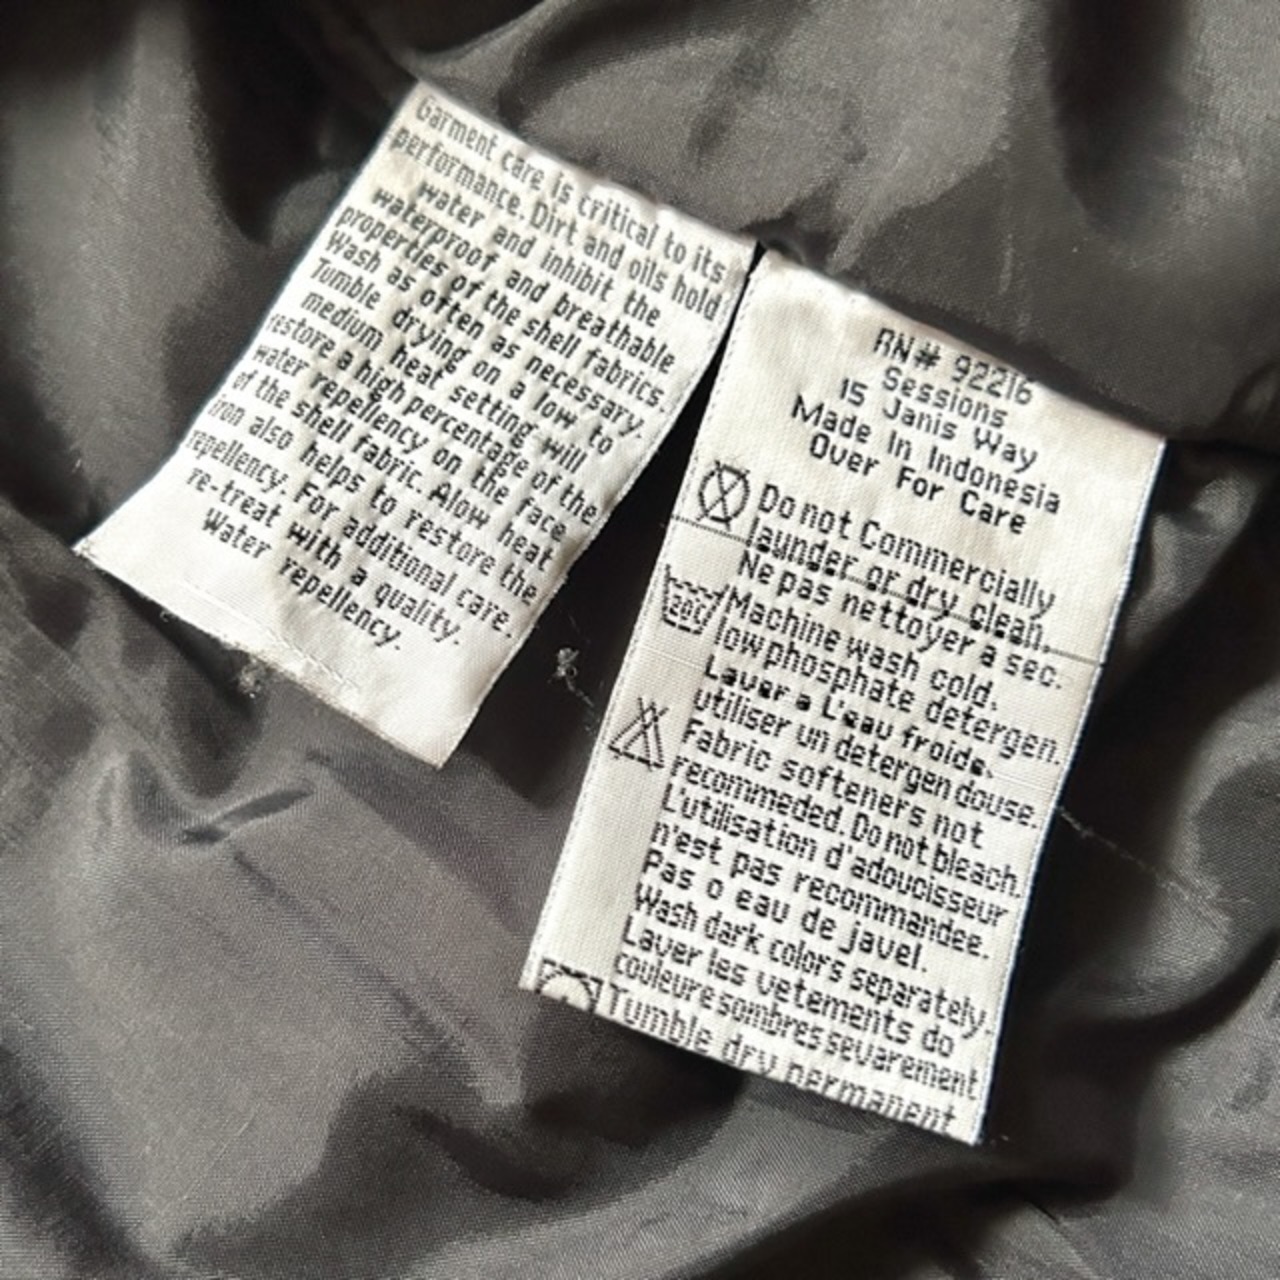 Garment care is critical to its
performance. Dirt and oils hold
water and inhibit the
waterproof and breathable
properties of the shell fabrics.
Wash as often as necessary.
Tumble drying on a low to
medium heat setting will
restore a high percentage of the
water repellency on the face
of the shell fabric. Alow heat
iron also helps to restore the
repellency. For additional care.
re-treat with a quality.
Water repellency.
RN# 92216
Sessions
15 Janis Way
Made In Indonesia
Over For Care
Do not Commercially
launder or dry clean.
Ne pas nettoyer a sec.
20C
Machine wash cold.
low phosphate detergen.
Laver a L'eau froide.
utiliser un detergen douse.
Fabric softeners not
recommeded. Do not bleach.
L'utilisation d'adoucisseur
n'est pas recommandee.
Pas o eau de javel.
Wash dark colors separately.
Laver les vetements do
couleure sombres sevarement
Tumble dry permanent